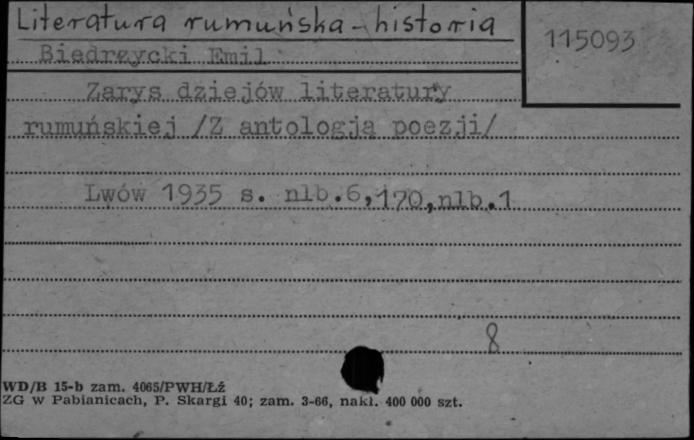 Literatura rumuńska - historia
115093
Biedrzycki Emil
Zarys dziejów literatury
rumuńskiej /Z antologją poezji/
Lwów 1935 s. nlb.6,170,nlb.1
8
WD/B 15-b zam. 4065/PWH/Łź
ZG w Pabianicach, P. Skargi 40; zam. 3-66, nakł. 400 000 szt.